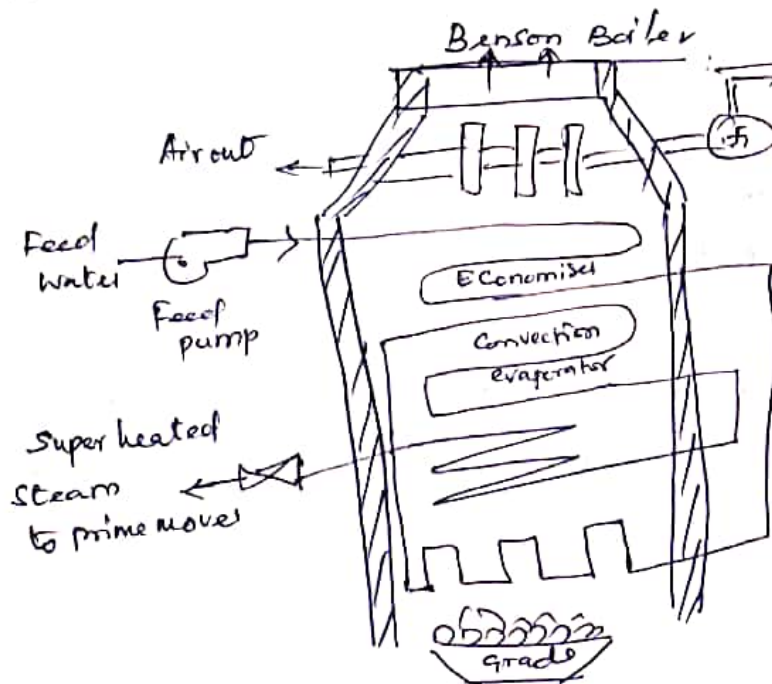 Benson Boiler
Air out
Feed
water
Feed
pump
Economiser
Convection
evaporator
Super heated
steam
to prime mover
Grade